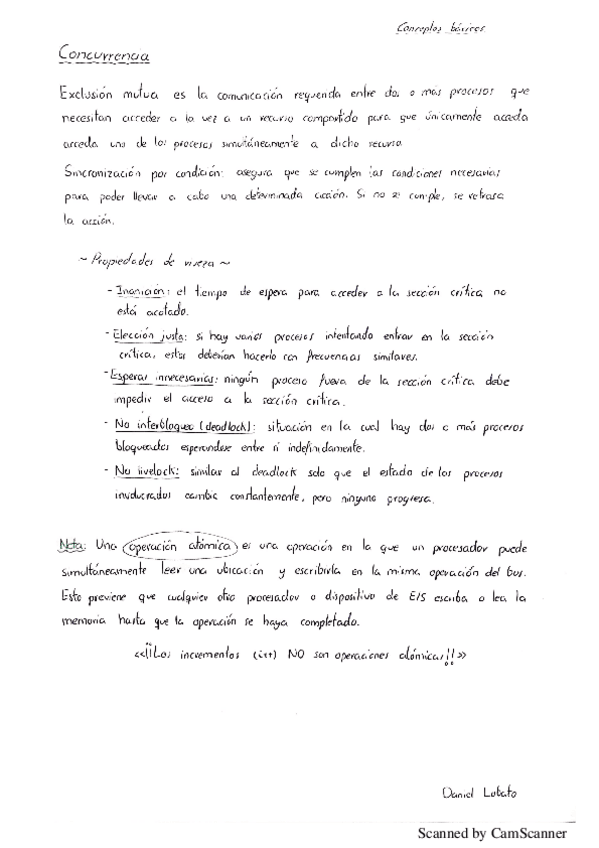 Conceptos básicos
Concurrencia
Exclusión mutua es la comunicación requerida entre dos o más procesos que
necesitan acceder a la vez a un recurso compartido para que únicamente acceda
acceda uno de los procesos simultáneamente a dicho recurso.
Sincronización por condición: asegura que se cumplen las condiciones necesarias
para poder llevar a cabo una determinada acción. Si no se cumple, se retrasa
la acción.
~ Propiedades de viveza ~
- Inanición: el tiempo de espera para acceder a la sección crítica no
está acotado.
- Elección justa: si hay varios procesos intentando entrar en la sección
crítica, estos deberían hacerlo con frecuencias similares.
- Esperas innecesarias: ningún proceso fuera de la sección crítica debe
impedir el acceso a la sección crítica.
- No interbloqueo (deadlock): situación en la cual hay dos o más procesos
bloqueados esperándose entre sí indefinidamente.
- No livelock: similar al deadlock solo que el estado de los procesos
involucrados cambia constantemente, pero ninguno progresa.
Nota: Una operación atómica es una operación en la que un procesador puede
simultáneamente leer una ubicación y escribirla en la misma operación del bus.
Esto previene que cualquier otro procesador o dispositivo de E/S escriba o lea la
memoria hasta que la operación se haya completado.
<<¡¡Los incrementos (i++) NO son operaciones atómicas!!>>
Daniel Lobato
Scanned by CamScanner